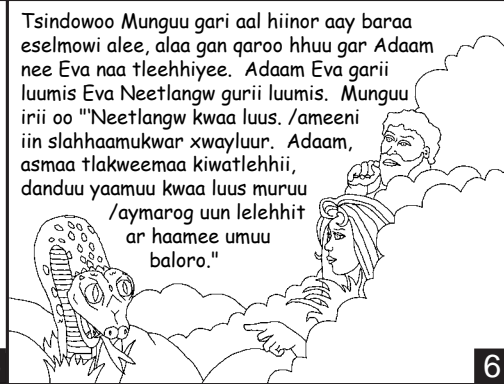 Tsindowoo Munguu gari aal hiinor aay baraa
eselmowi alee, alaa gan qaroo hhuu gar Adaam
nee Eva naa tleehhiyee. Adaam Eva garii
luumis Eva Neetlangw gurii luumis. Munguu
irii oo "'Neetlangw kwaa luus. /ameeni
iin slahhaamukwar xwayluur. Adaam,
asmaa tlakweemaa kiwatlehhii,
danduu yaamuu kwaa luus muruu
/aymarog uun lelehhit
ar haamee umuu
baloro."
6